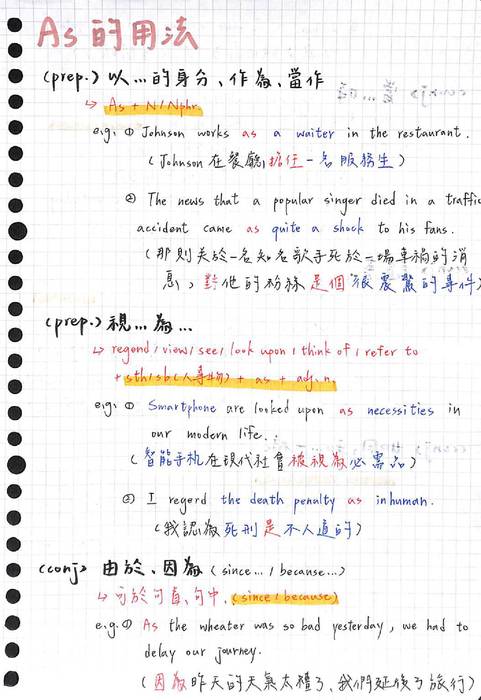 As 的用法
(prep.) 以...的身分、作為、當作
↳ As + N / Nphr.
e.g. ① Johnson works as a waiter in the restaurant.
(Johnson 在餐廳擔任一名服務生)
② The news that a popular singer died in a traffic
accident came as quite a shock to his fans.
(那則关於一名知名歌手死於一場車禍的消
息,對他的粉絲是個很震驚的事件)
(prep.) 視...為...
↳ regerd / view / see / look upon / think of / refer to
+ sth/sb (人事物) + as + adj. n.
e.g. ① Smartphone are looked upon as necessities in
our modern life.
(智能手机在現代社會被視為必需品)
② I regerd the death penalty as inhuman.
(我認為死刑是不人道的)
(conj) 由於、因為 (since... / because...)
↳ 可於句首、句中. (since / because)
e.g. ① As the wheater was so bad yesterday, we had to
delay our journey.
(因為昨天的天氣太糟了,我們延後了旅行)